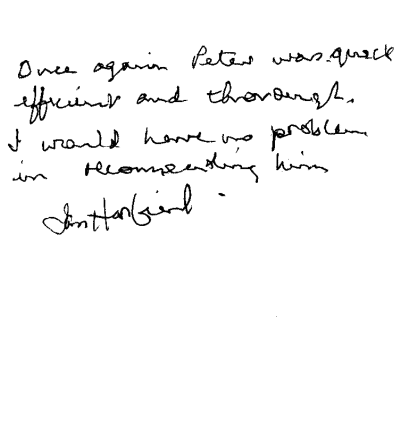 Once again Peter was quick
efficient and thorough.
I would have no problem
in recommending him